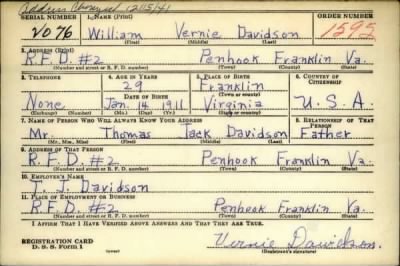 Address Changed 12/15/41
SERIAL NUMBER 1. NAME (Print) ORDER NUMBER
2076 William Vernie Davidson 1595
(First) (Middle) (Last)
2. ADDRESS (Print)
R.F.D. #2 Penhook Franklin Va.
(Number and street or R. F. D. number) (Town) (County) (State)
3. TELEPHONE 4. AGE IN YEARS 5. PLACE OF BIRTH 6. COUNTRY OF CITIZENSHIP
29 Franklin
DATE OF BIRTH (Town or county)
None Jan. 14 1911 Virginia U.S.A.
(Exchange) (Number) (Mo.) (Day) (Yr.) (State or country)
7. NAME OF PERSON WHO WILL ALWAYS KNOW YOUR ADDRESS 8. RELATIONSHIP OF THAT PERSON
Mr. Thomas Jack Davidson Father
(Mr., Mrs., Miss) (First) (Middle) (Last)
9. ADDRESS OF THAT PERSON
R.F.D. #2 Penhook Franklin Va.
(Number and street or R. F. D. number) (Town) (County) (State)
10. EMPLOYER'S NAME
T. J. Davidson
11. PLACE OF EMPLOYMENT OR BUSINESS
R.F.D. #2 Penhook Franklin Va.
(Number and street or R. F. D. number) (Town) (County) (State)
I AFFIRM THAT I HAVE VERIFIED ABOVE ANSWERS AND THAT THEY ARE TRUE.
REGISTRATION CARD
D. S. S. Form 1
Vernie Davidson
(Registrant's signature)